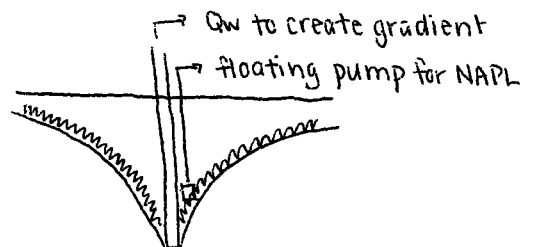 Qw to create gradient
floating pump for NAPL